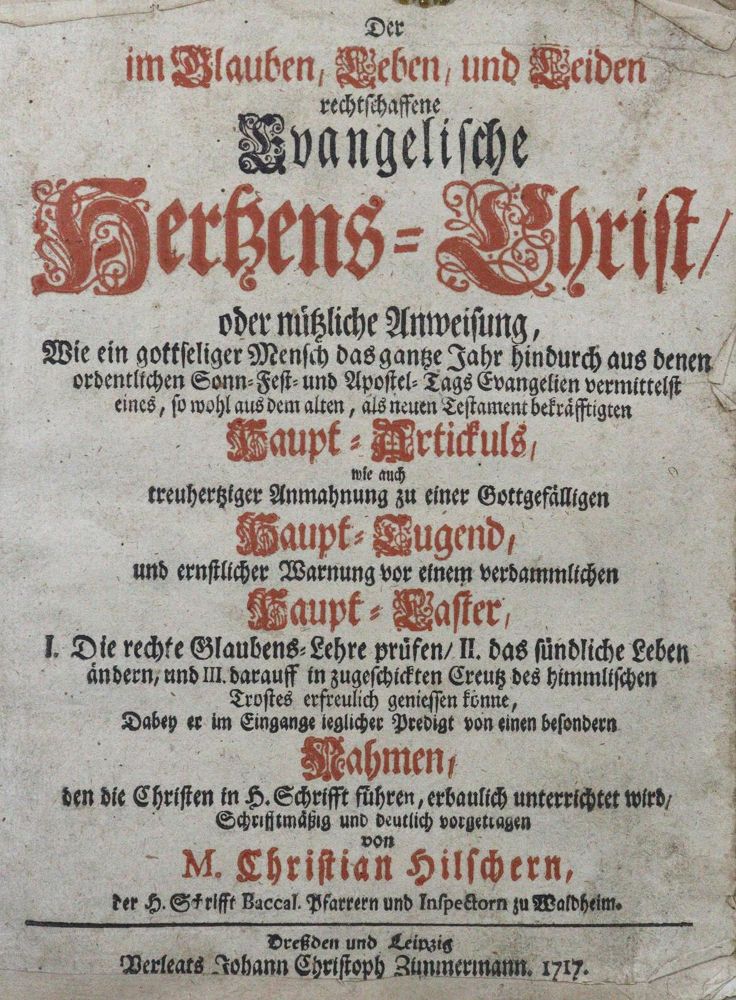 Der
im Glauben, Leben, und Leiden
rechtschaffene
Evangelische
Hertzens-Christ/
oder nützliche Anweisung,
Wie ein gottseliger Mensch das gantze Jahr hindurch aus denen
ordentlichen Sonn-Fest- und Apostel-Tags Evangelien vermittelst
eines, so wohl aus dem alten, als neuen Testament bekräfftigten
Haupt-Artickuls,
wie auch
treuhertziger Anmahnung zu einer Gottgefälligen
Haupt-Tugend,
und ernstlicher Warnung vor einem verdammlichen
Haupt-Laster,
I. Die rechte Glaubens-Lehre prüfen/ II. das sündliche Leben
ändern, und III. darauff in zugeschickten Creutz des himmlischen
Trostes erfreulich geniessen könne,
Dabey er im Eingange ieglicher Predigt von einen besondern
Nahmen,
den die Christen in H. Schrifft führen, erbaulich unterrichtet wird/
Schrifftmäßig und deutlich vorgetragen
von
M. Christian Hilschern,
der H. Schrifft Baccal. Pfarrern und Inspectorn zu Waldheim.
Dreßden und Leipzig
Verlegts Johann Christoph Zimmermann. 1717.